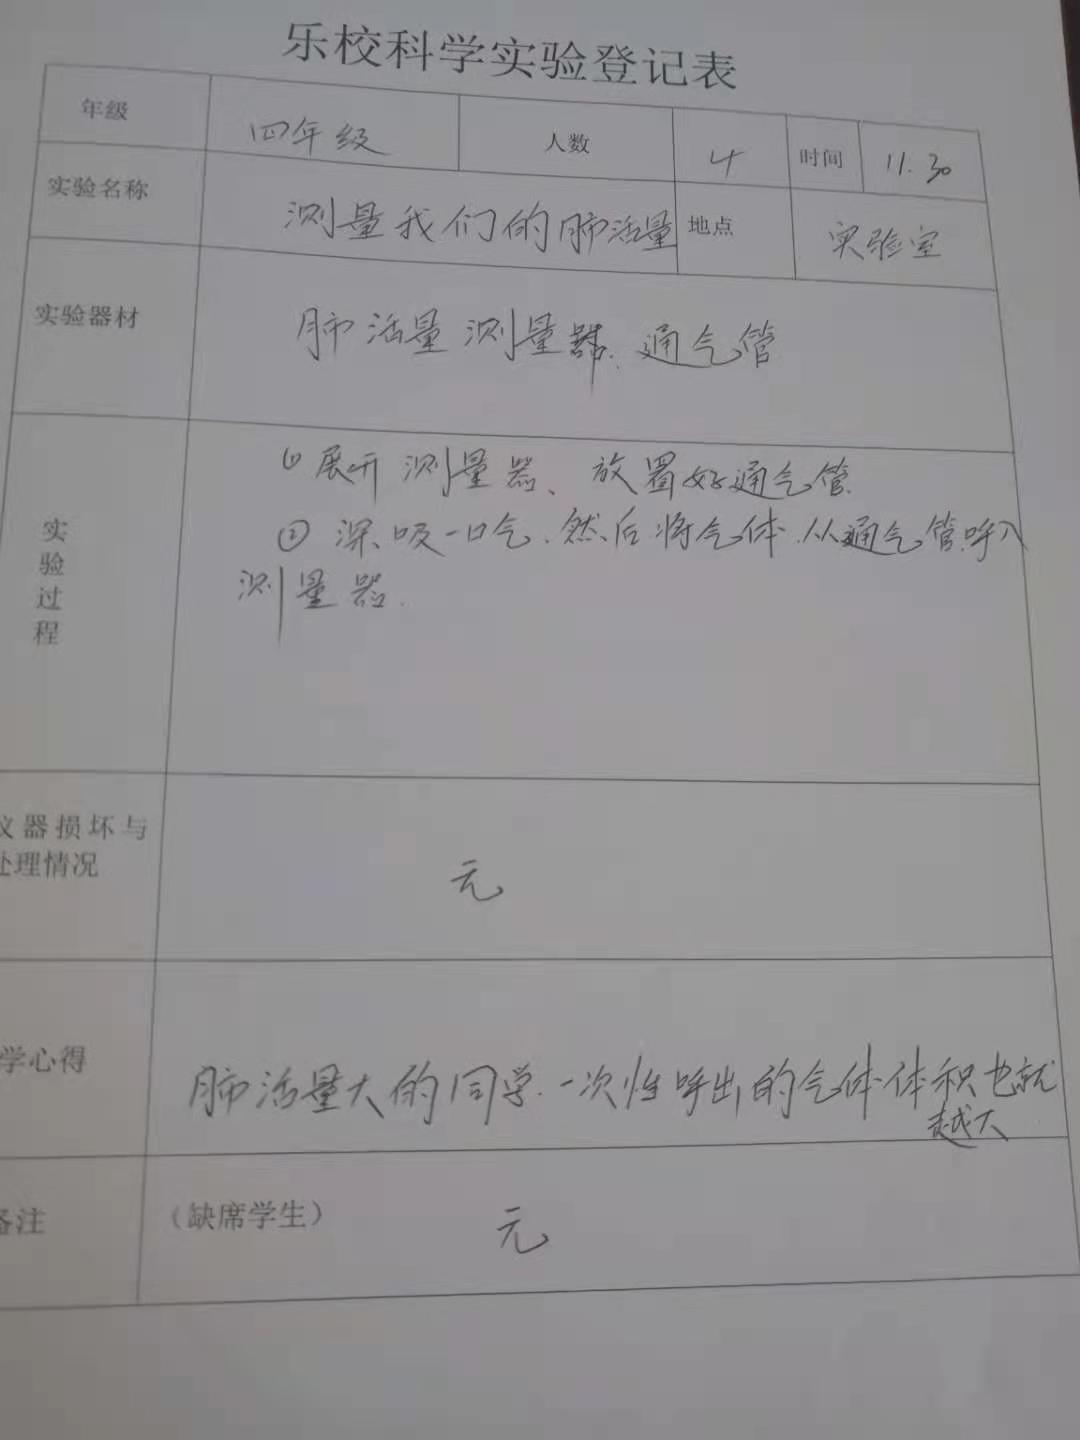 乐校科学实验登记表
年级 四年级 人数 4 时间 11.30
实验名称 测量我们的肺活量 地点 实验室
实验器材 肺活量测量器.通气管
实验过程
① 展开测量器、放置好通气管
② 深吸一口气.然后将气体.从通气管呼入
测量器.
仪器损坏与
处理情况
无
学心得
肺活量大的同学.一次性呼出的气体体积也就
越大
备注 (缺席学生) 无